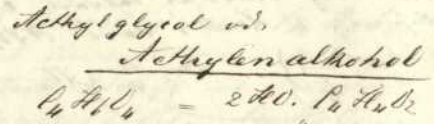 Aethylglycol od.
Aethylenalkohol
C₄H₆O₄ = 2HO. C₄H₄O₂